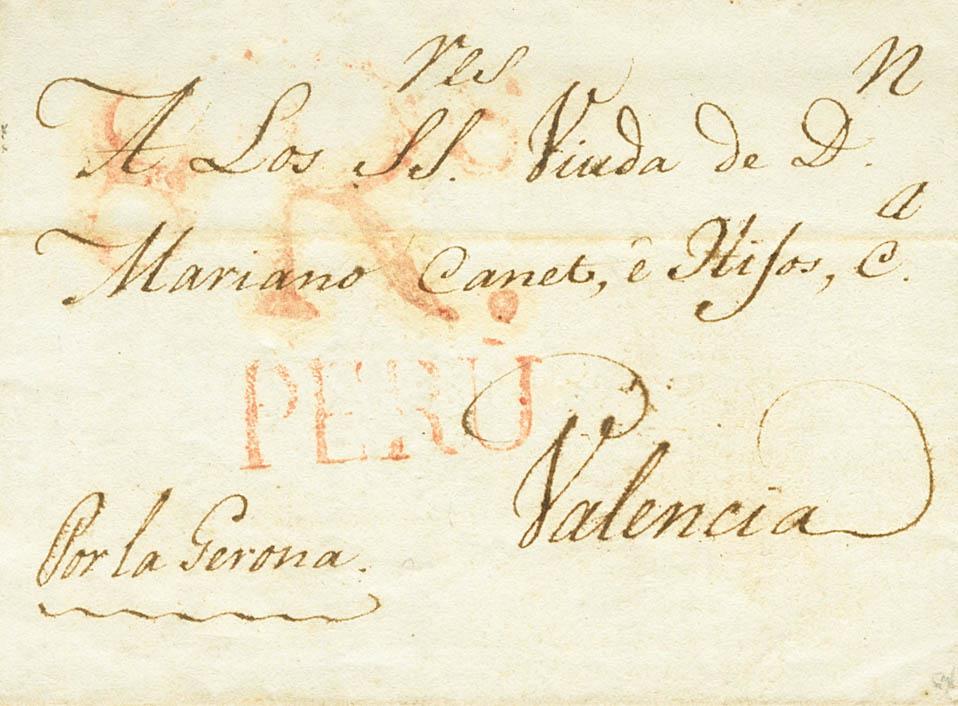 A Los SS.res Viuda de D.n
Mariano Canet, é Hijos, C.a
R.
PERÚ
Valencia
Por la Gerona.